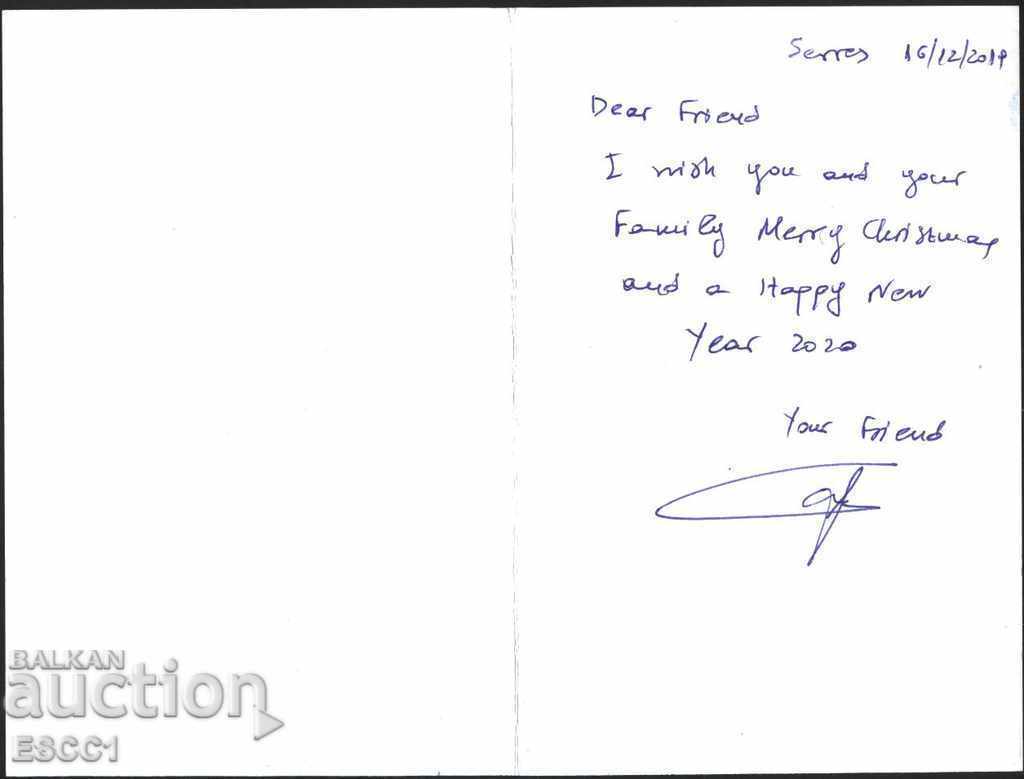 Serres 16/12/2019
Dear Friend
I wish you and your
Family Merry Christmas
and a Happy New
Year 2020
Your Friend
BALKAN
auction
ESCC1